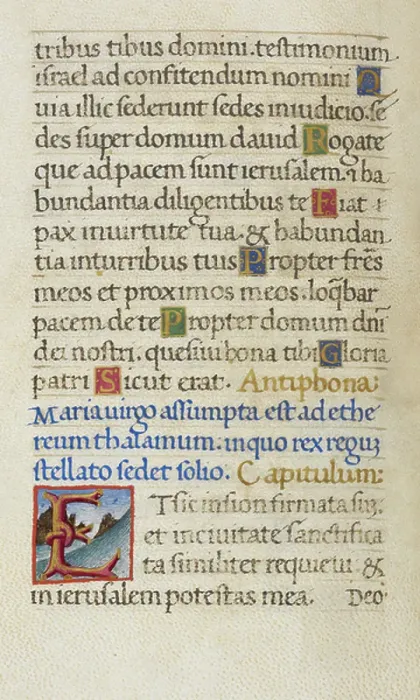 tribus tibus domini.testimonium
israel ad confitendum nomini Q
uia illic sederunt sedes iniudicio.se
des super domum dauid Rogate
que adpacem sunt ierusalem. ⁊ ba
bundantia diligentibus te Fiat ⁊
pax inuirtute tua. & babundan
tia inturribus tuis Propter fr̄es
meos et proximos meos.loq̄bar
pacem de te Propter domum dnī
dei nostri. quesiui bona tibi Gloria
patri Sicut erat. Antiphona:
Maria uirgo assumpta est ad ethe
reum thalamum. inquo rex reguꝫ
stellato sedet solio. Capitulum:
ET sic insion firmata suꝫ.
et inciuitate sanctifica
ta similiter requieui. &
in ierusalem potestas mea. Deo